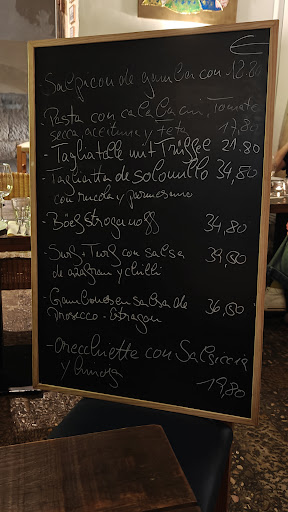 €
- Salpicon de gambas con - 18.80
- Pasta con calabacini, Tomate
secca, aceituna y feta 17,80
- Tagliatelle mit Trüffel 21.80
- Tagliatta de solomillo 34,80
con rucola y parmesano
- Böefstroganoff 34,80
- Surf-Turf con salsa 39,80
de y chilli
- Gambones en salsa de 36,80
Prosecco - Estragon
- Orecchiette con Salsiccia
y 19,80